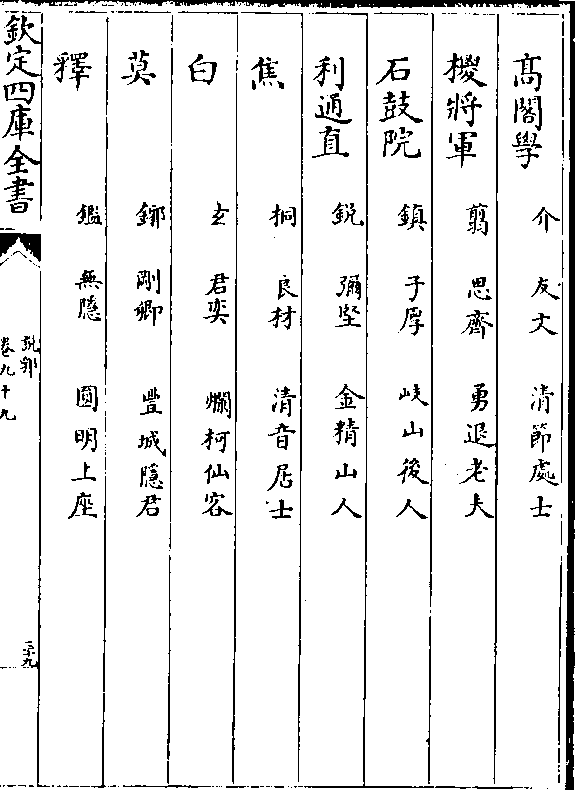 髙閣學　介　友丈　清節處士
機將軍　翦　思齊　勇退老夫
石鼓院　鎮　子厚　岐山後人
利通直　鋭　彌堅　金精山人
焦　桐　良材　清音居士
白　玄　君奕　爛柯仙客
莫　鋣　剛卿　豐城隱君
釋　鑑　無隱　圓明上座
欽定四庫全書
說郛
卷九十九
二十九